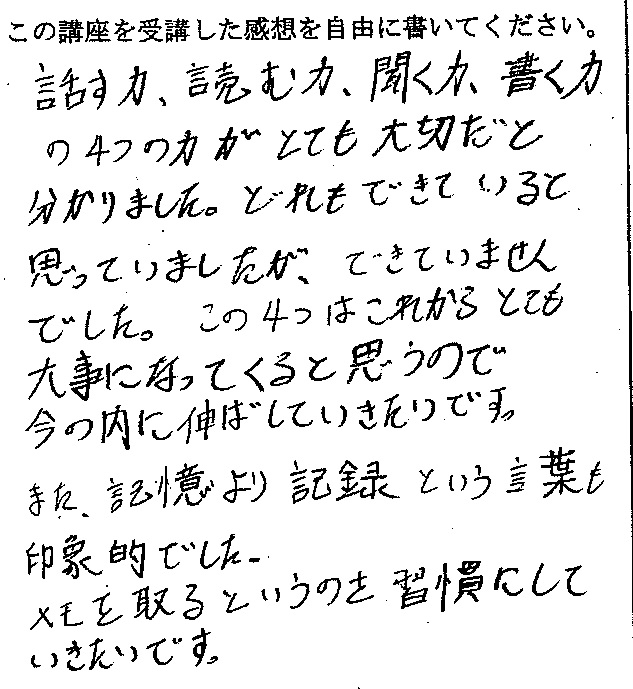 この講座を受講した感想を自由に書いてください。
話す力、読む力、聞く力、書く力
の4つの力がとても大切だと
分かりました。どれもできていると
思っていましたが、できていません
でした。この4つはこれからとても
大事になってくると思うので
今の内に伸ばしていきたいです。
また、記憶より記録という言葉も
印象的でした。
メモを取るというのを習慣にして
いきたいです。